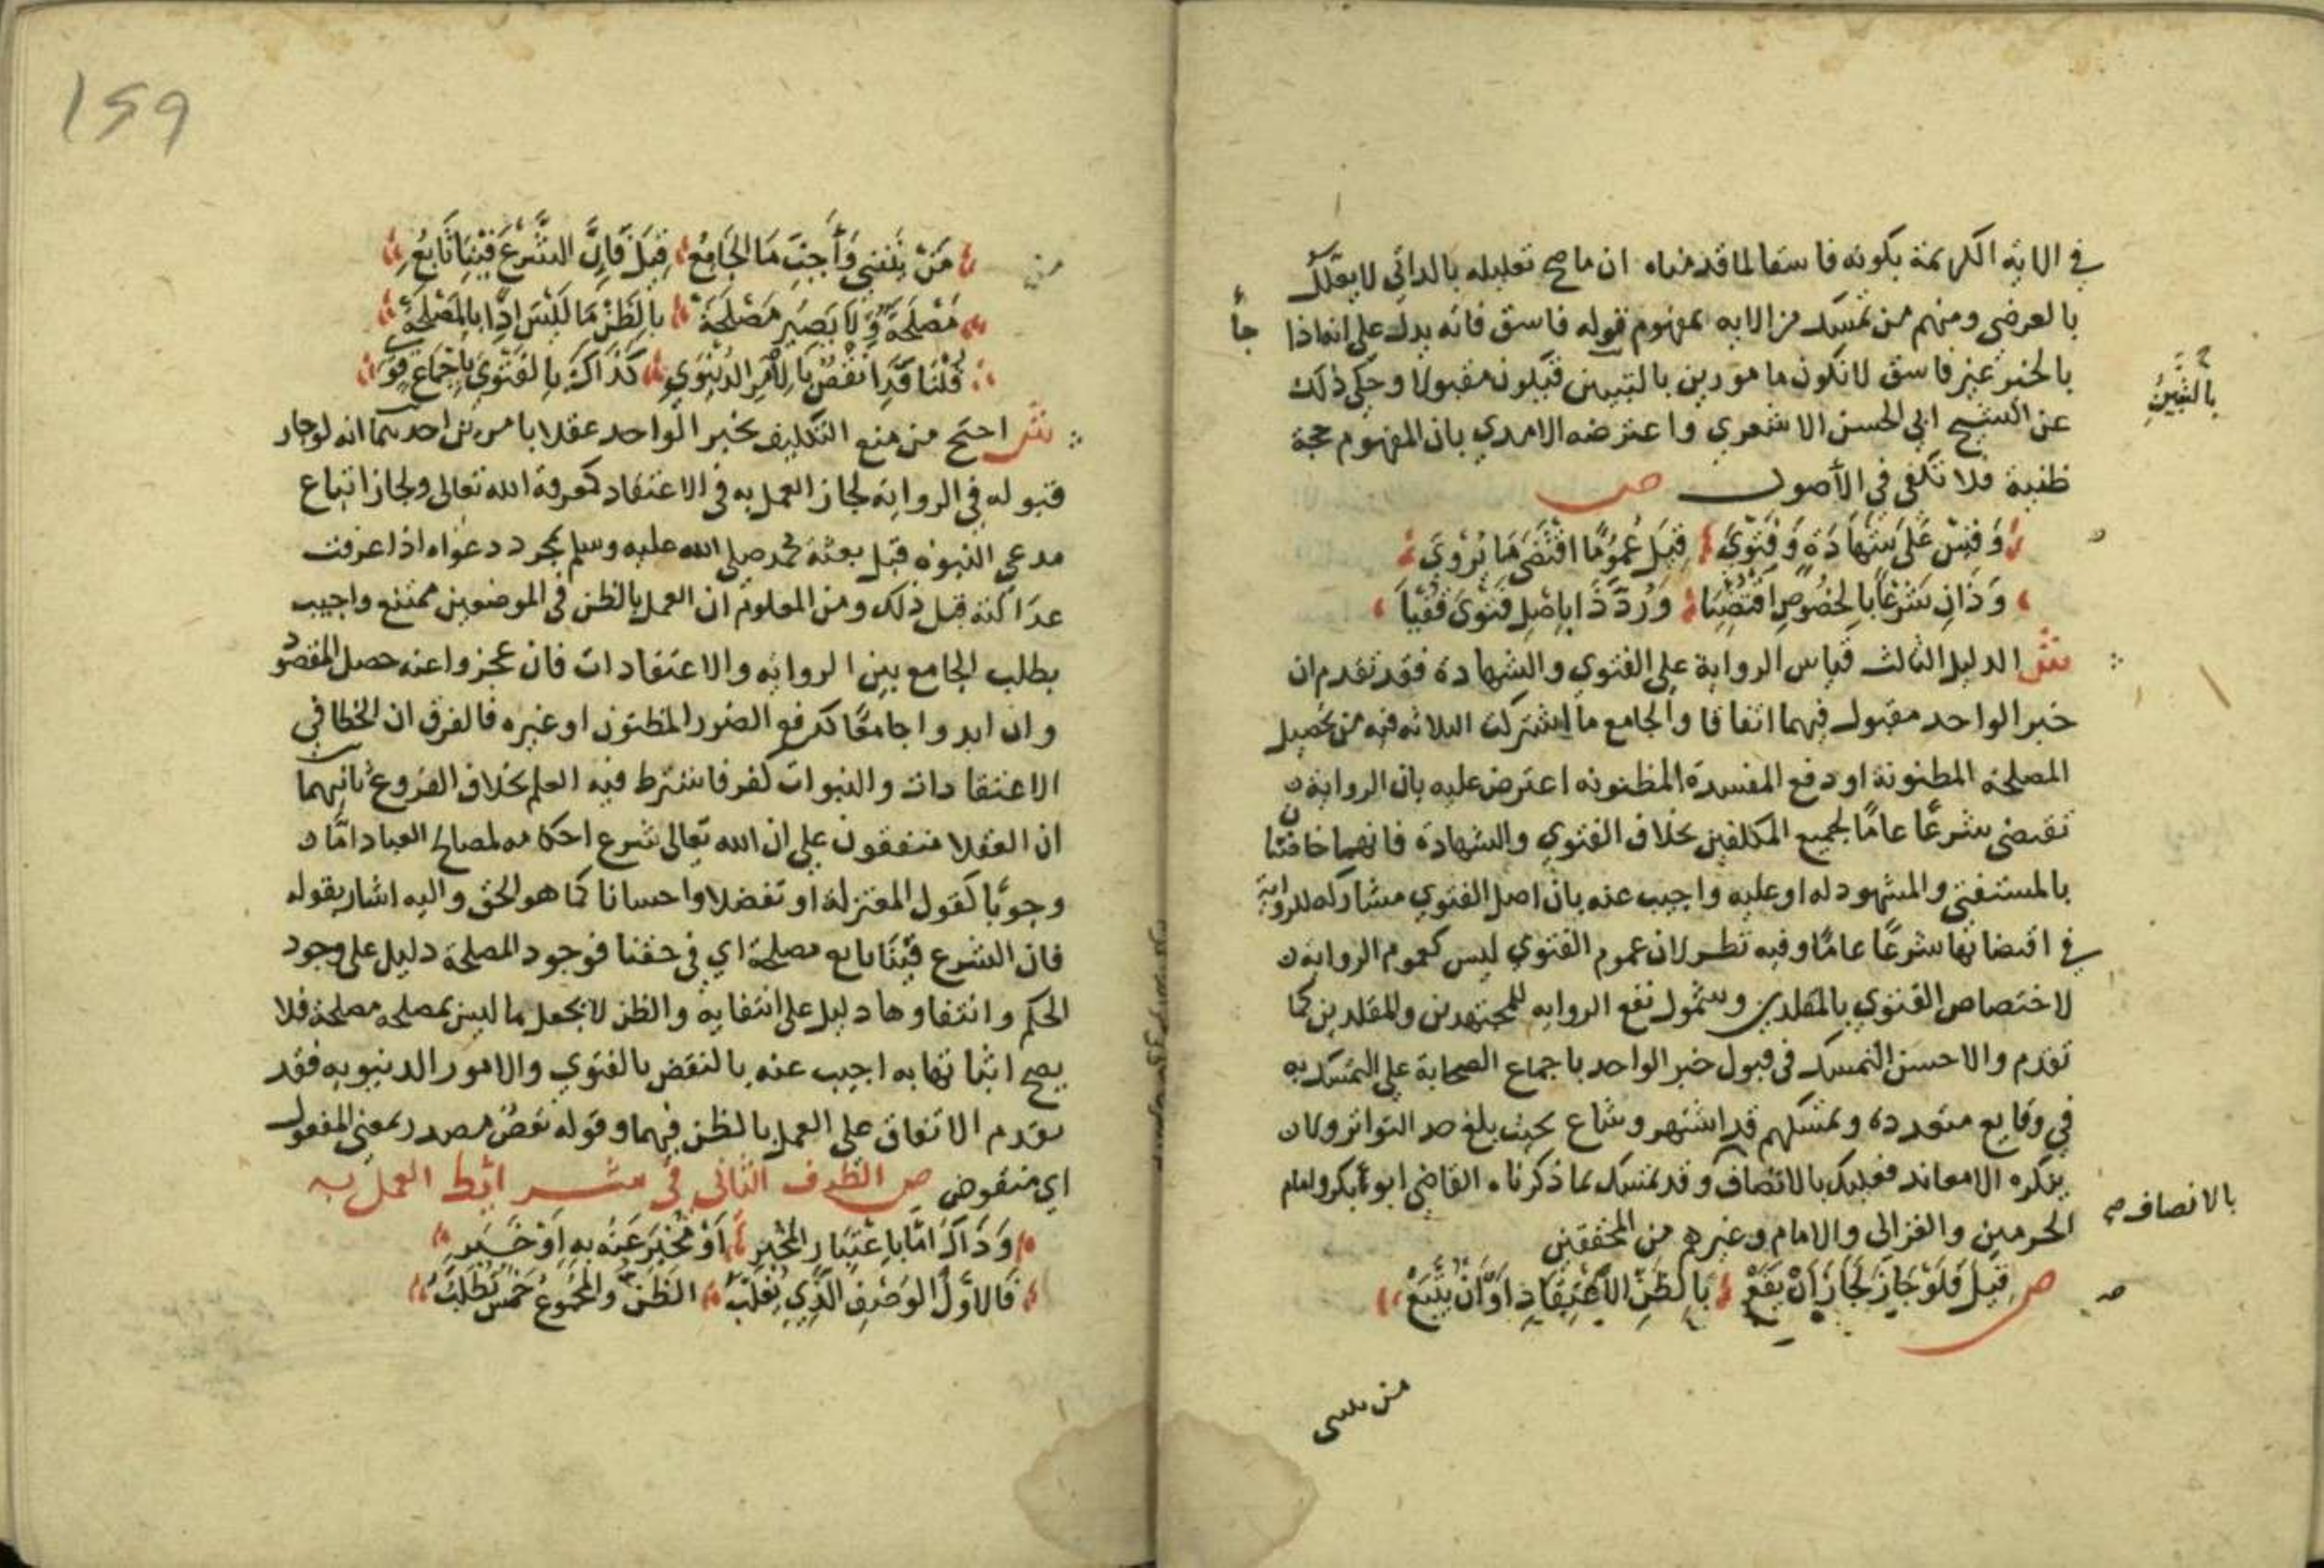 في الاية الكريمة بكونه فاسقا لما قدمناه ان ما صح تعليله بالذاتي لا يعلل
بالعرضي ومنهم من تمسك من الاية بمفهوم قوله فاسق فانه يدل على انه اذا جاء
بالخبر غير فاسق لا نكون مامورين بالتبيين فيكون مقبولا وحكي ذلك
بالتبين
عن الشيخ ابي الحسن الاشعري واعترضه الامدي بان المفهوم حجة
ظنية فلا تكفي في الأصول ص
وَقِسْ عَلَى شَهَادَةٍ وَفَتْوَى قِيلَ عُمُومًا اقْتَضَى مَا يُرْوَى
وَذَانِ شَرْعًا بِالخُصُوصِ اقْتَضِيَا وَرُدَّ ذَا بِاصْلِ فَتْوَى فُتْيَا
ش الدليل الثالث قياس الرواية على الفتوي والشهادة فقد تقدم ان
خبر الواحد مقبول فيهما اتفاقا والجامع ما اشتركت الثلاثة فيه من تحصيل
المصلحة المظنونة او دفع المفسدة المظنونه اعترض عليه بان الرواية
تقتضي شرعًا عامًا لجميع المكلفين بخلاف الفتوي والشهادة فانهما خاصتان
بالمستفتي والمشهود له او عليه واجيب عنه بان اصل الفتوي مشاركه للرواية
في اقتضائها شرعًا عامًا وفيه نظر لان عموم الفتوي ليس كعموم الرواية
لاختصاص الفتوي بالمقلدين وشمول نفع الرواية للمجتهدين والمقلدين كما
تقدم والاحسن التمسك في قبول خبر الواحد باجماع الصحابة على التمسك به
في وقايع متعدده وتمسكهم قد اشتهر وشاع بحيث بلغ حد التواتر ولا
ينكره الا معاند فعليك بالانصاف وقد تمسك بما ذكرناه القاضي ابو بكر وامام
بالانصاف صح
الحرمين والغزالي والامام وغيرهم من المحققين
ص قِيلَ فَلَوْ جَازَ لَجَازَ أَنْ يَقَعْ بِالظَنِّ الاعْتِقَادِ أَوْ أَنْ يُتَّبَعْ
159
مَنْ يَنْبَنِي وَأَجِبْ مَا الجَامِعُ قِيلَ فَإِنَّ الشَّرْعَ فِينَا تَابِعُ
مَصْلَحَةً وَلَا يَصِيرُ مَصْلَحَةْ بِالظَنِّ مَا لَيْسَ إِذًا بِالمَصْلَحَةْ
قُلْنَا قَدِ انْقُضْ بِالأَمْرِ الدُّنْيَوِي كَذَاكَ بِالفَتْوَى بِاجْمَاعٍ قَوِي
ش احتج من منع التكليف بخبر الواحد عقلا بامرين احدهما انه لو جاز
قبوله في الرواية لجاز العمل به في الاعتقاد كمعرفة الله تعالى ولجاز اتباع
مدعي النبوة قبل بعثة محمد صلى الله عليه وسلم بمجرد دعواه اذا عرفت
عدالته قبل ذلك ومن المعلوم ان العمل بالظن في الموضعين ممتنع واجيب
بطلب الجامع بين الرواية والاعتقادات فان عجزوا عنه حصل المقصود
وان ابدوا جامعًا كدفع الضرر المظنون او غيره فالفرق ان الخطا في
الاعتقادات والنبوات كفر فاشترط فيه العلم بخلاف الفروع ثانيهما
ان العقلا متفقون على ان الله تعالى شرع احكامه لمصالح العباد امّا
وجوبًا كقول المعتزلة او تفضلا واحسانا كما هو الحق واليه اشار بقوله
فان الشرع فينا تابع مصلحة اي في حقنا فوجود المصلحة دليل على وجود
الحكم وانتفاوها دليل على انتفايه والظن لا يجعل ما ليس بمصلحه مصلحة فلا
يصح اثباتها به اجيب عنه بالنقض بالفتوي والامور الدنيويه فقد
تقدم الاتفاق على العمل بالظن فيهما وقوله نقض مصدر بمعنى المفعول
اي منقوض ص الطرف الثاني في شرائط العمل به
وَذَاكَ امَّا بِاعْتِبَارِ المُخْبِرِ أَوْ مُخْبَرٍ عَنْهُ بِهِ أَوْ خَبَرِ
فَالأَوَّلُ الوَصْفُ الَّذِي يُغَلِّبُ الظَنَّ وَالمَجْمُوعُ خَمْسٌ تُطْلَبُ